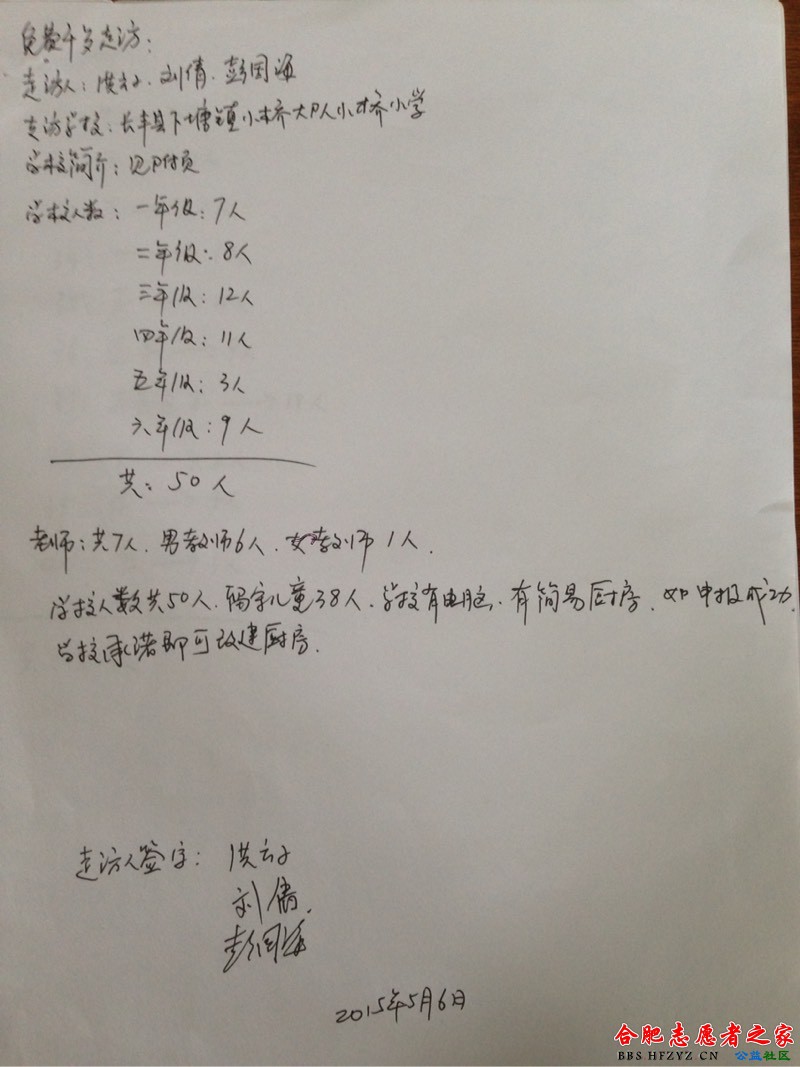 免费午餐走访：
走访人：洪云子、刘倩、彭国海
走访学校：长丰县下塘镇小桥大队小桥小学
学校简介：见附页
学校人数：一年级：7人
二年级：8人
三年级：12人
四年级：11人
五年级：3人
六年级：9人
共：50人
老师：共7人、男教师6人、女教师1人.
学校人数共50人、留守儿童38人、学校有电脑、有简易厨房、如申报成功
学校承诺即可改建厨房.
走访人签字：洪云子
刘倩.
彭国海
2015年5月6日
合肥志愿者之家
BBS.HFZYZ.CN 公益社区